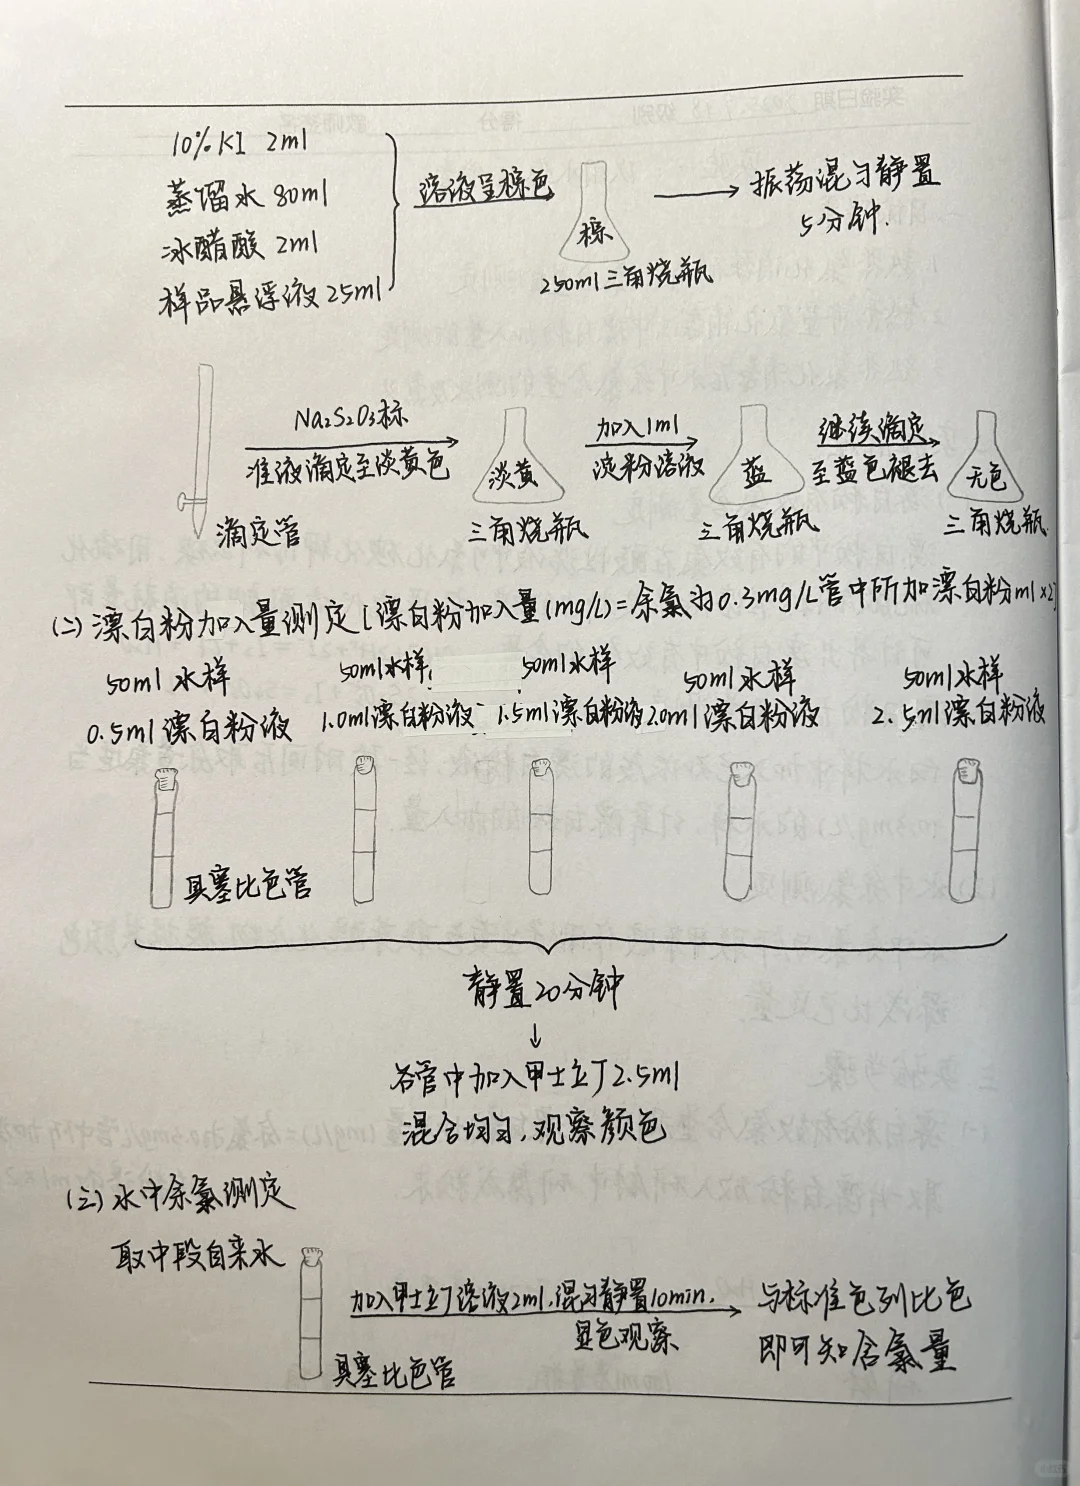 10%KI 2ml
蒸馏水 80ml
冰醋酸 2ml
样品悬浮液25ml
溶液呈棕色
棕
250ml三角烧瓶
振荡混匀静置
5分钟.
Na₂S₂O₃标
准液滴定至淡黄色
滴定管
淡黄
三角烧瓶
加入1ml
淀粉溶液
蓝
三角烧瓶
继续滴定
至蓝色褪去
无色
三角烧瓶
(二)漂白粉加入量测定[漂白粉加入量(mg/L)=余氯为0.3mg/L管中所加漂白粉ml×2
50ml水样
0.5ml漂白粉液
50ml水样
1.0ml漂白粉液
50ml水样
1.5ml漂白粉液
50ml水样
2.0ml漂白粉液
50ml水样
2.5ml漂白粉液
具塞比色管
静置20分钟
↓
各管中加入甲士立丁2.5ml
混合均匀,观察颜色
(三)水中余氯测定
取中段自来水
具塞比色管
加入甲士立丁溶液2ml,混匀静置10min.
显色观察
与标准色列比色
即可知含氯量